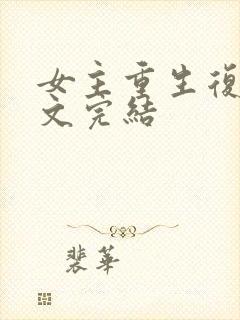 女主重生復
文完結
裴華